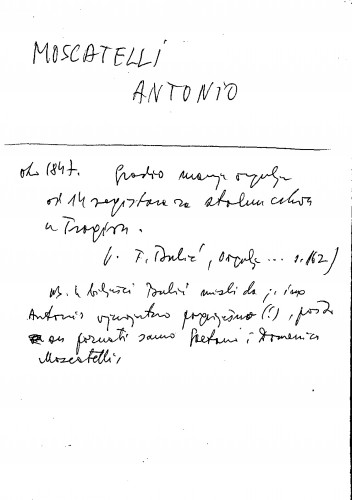 MOSCATELLI
ANTONIO
oko 1847. Gradio manje orgulje
od 14 registara za stolnu crkvu
u Trogiru.
(. T. Bulić, Orgulje ... s. 162)
NB. U bilješci Bulić misli da je ime
Antonio vjerojatno pogrješno (!), pošto
su poznati samo Gaetano i Domenico
Moscatelli,